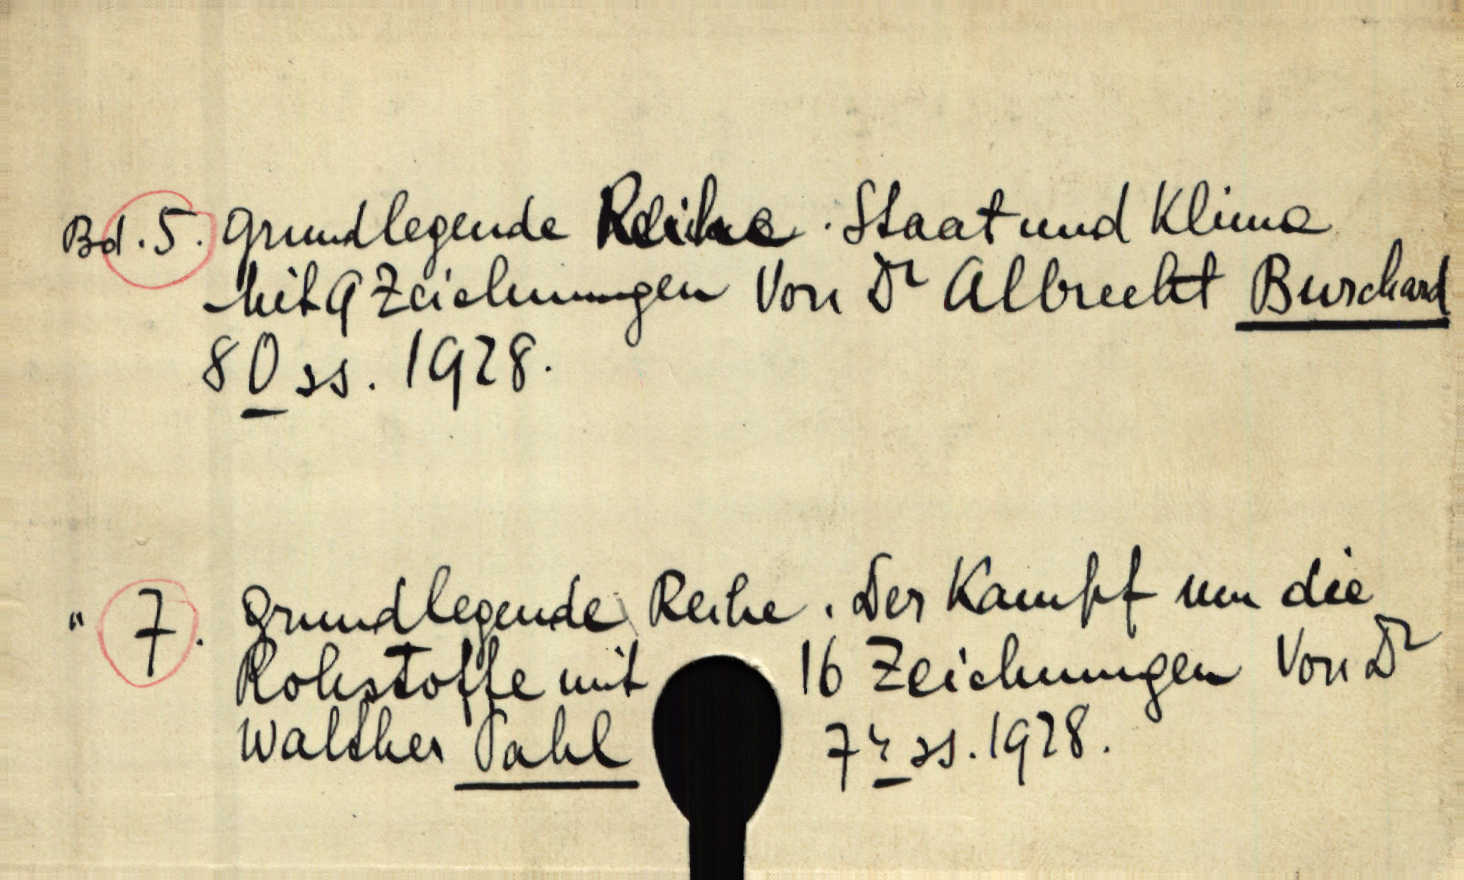 Bd. 5. Grundlegende Reihe. Staat und Klima
Mit 9 Zeichnungen Von Dr Albrecht Burchard
80 ss. 1928.
" 7. Grundlegende Reihe. Der Kampf um die
Rohstoffe mit 16 Zeichnungen Von Dr
Walther Pahl 74 ss. 1928.